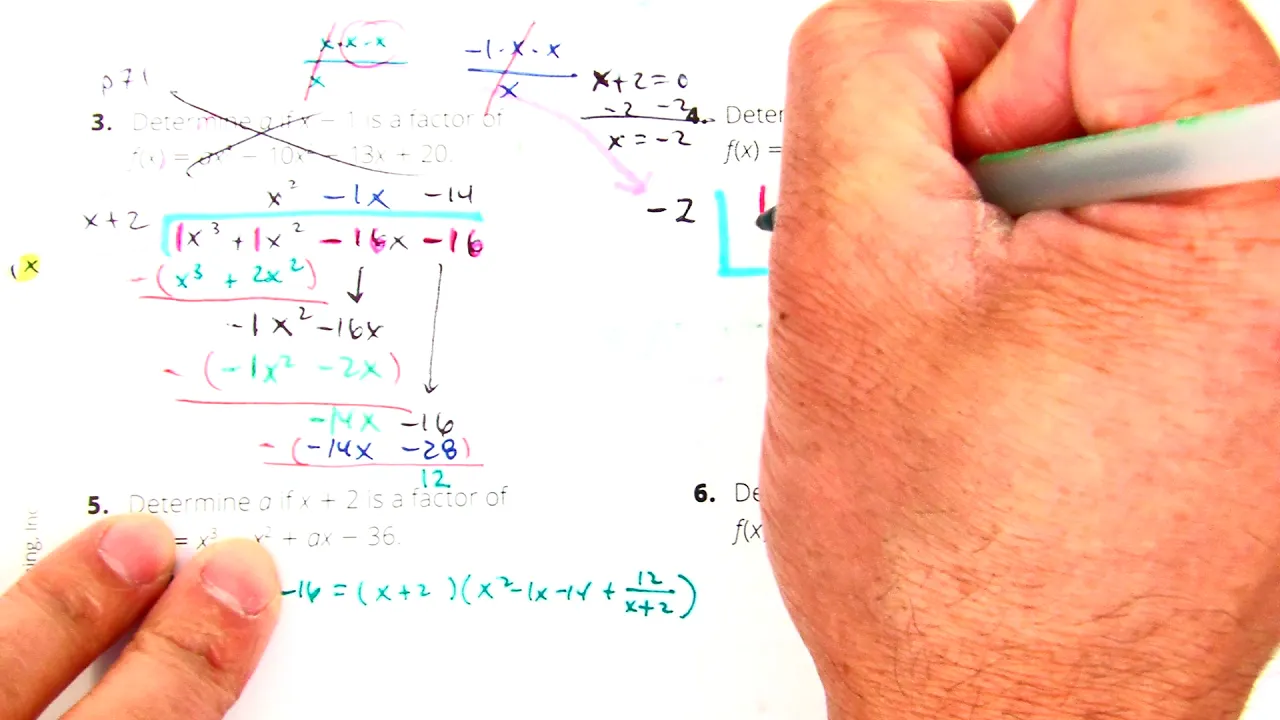 x · x · x
x
-1 · x · x
x
p 71
x + 2 = 0
-2 -2
x = -2
3. Determine a if x - 1 is a factor of
f(x) = ax³ - 10x² - 13x + 20.
4. Deter
f(x) =
x² -1x -14
x + 2
1x³ + 1x² - 16x - 16
- (x³ + 2x²)
-1x² - 16x
- (-1x² - 2x)
-14x - 16
- (-14x - 28)
12
-2
1
x
5. Determine a if x + 2 is a factor of
= x³ x² + ax - 36.
6. De
f(x)
-16 = (x+2)(x² - 1x - 14 + 12/(x+2))
ing, Inc